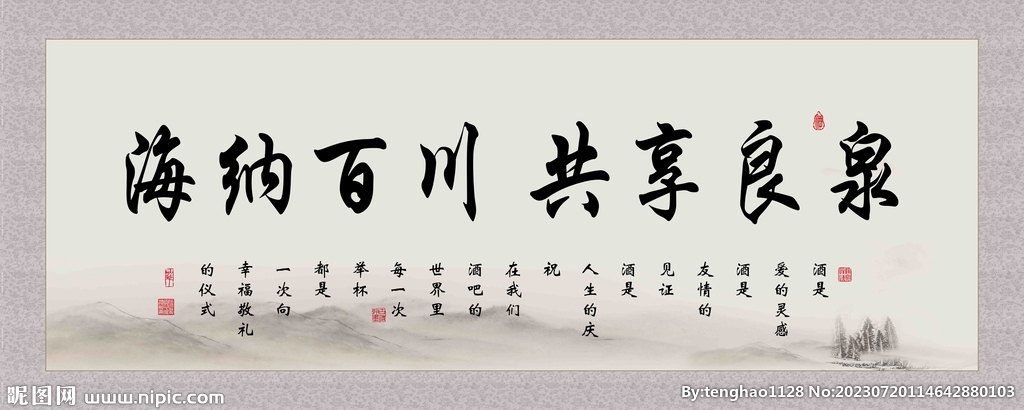 海纳百川 共享良泉
酒是
爱的灵感
酒是
友情的
见证
酒是
人生的庆
祝
在我们
酒吧的
世界里
每一次
举杯
都是
一次向
幸福敬礼
的仪式
昵图网 www.nipic.com
By:tenghao1128 No:20230720114642880103